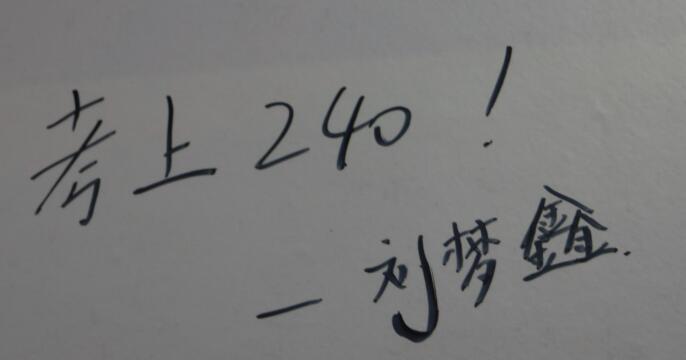 考上240！
—刘梦鑫.